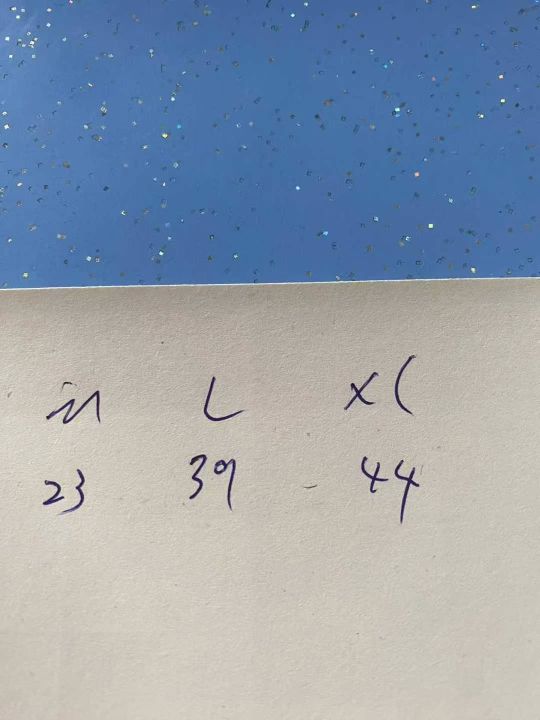 M L X(
23 39 44